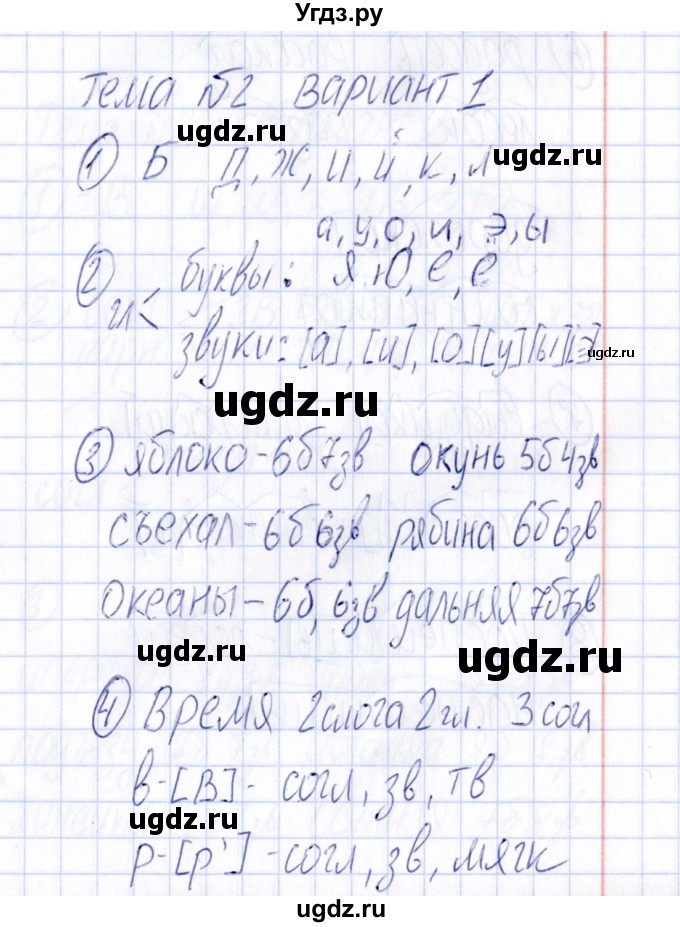 Угдз.ру
Тема №2 Вариант 1
ugdz.ru
1 Б Д, Ж, И, Й, К, Л
ugdz.ru
а, у, о, и, э, ы
2 гл < буквы: я, ю, е, ё
звуки: [а], [и], [о] [у] [ы] [э]
ugdz.ru
ugdz.ru
3 яблоко - 6б 7зв окунь 5б 4зв
съехал - 6б 6зв рябина 6б 6зв
океаны - 6б, 6зв дальняя 7б 7зв
ugdz.ru
ugdz.ru
4 Время 2 слога 2 гл. 3 согл
в - [В] - согл, зв, тв
ugdz.ru
р - [р'] - согл, зв, мягк
ugdz.ru